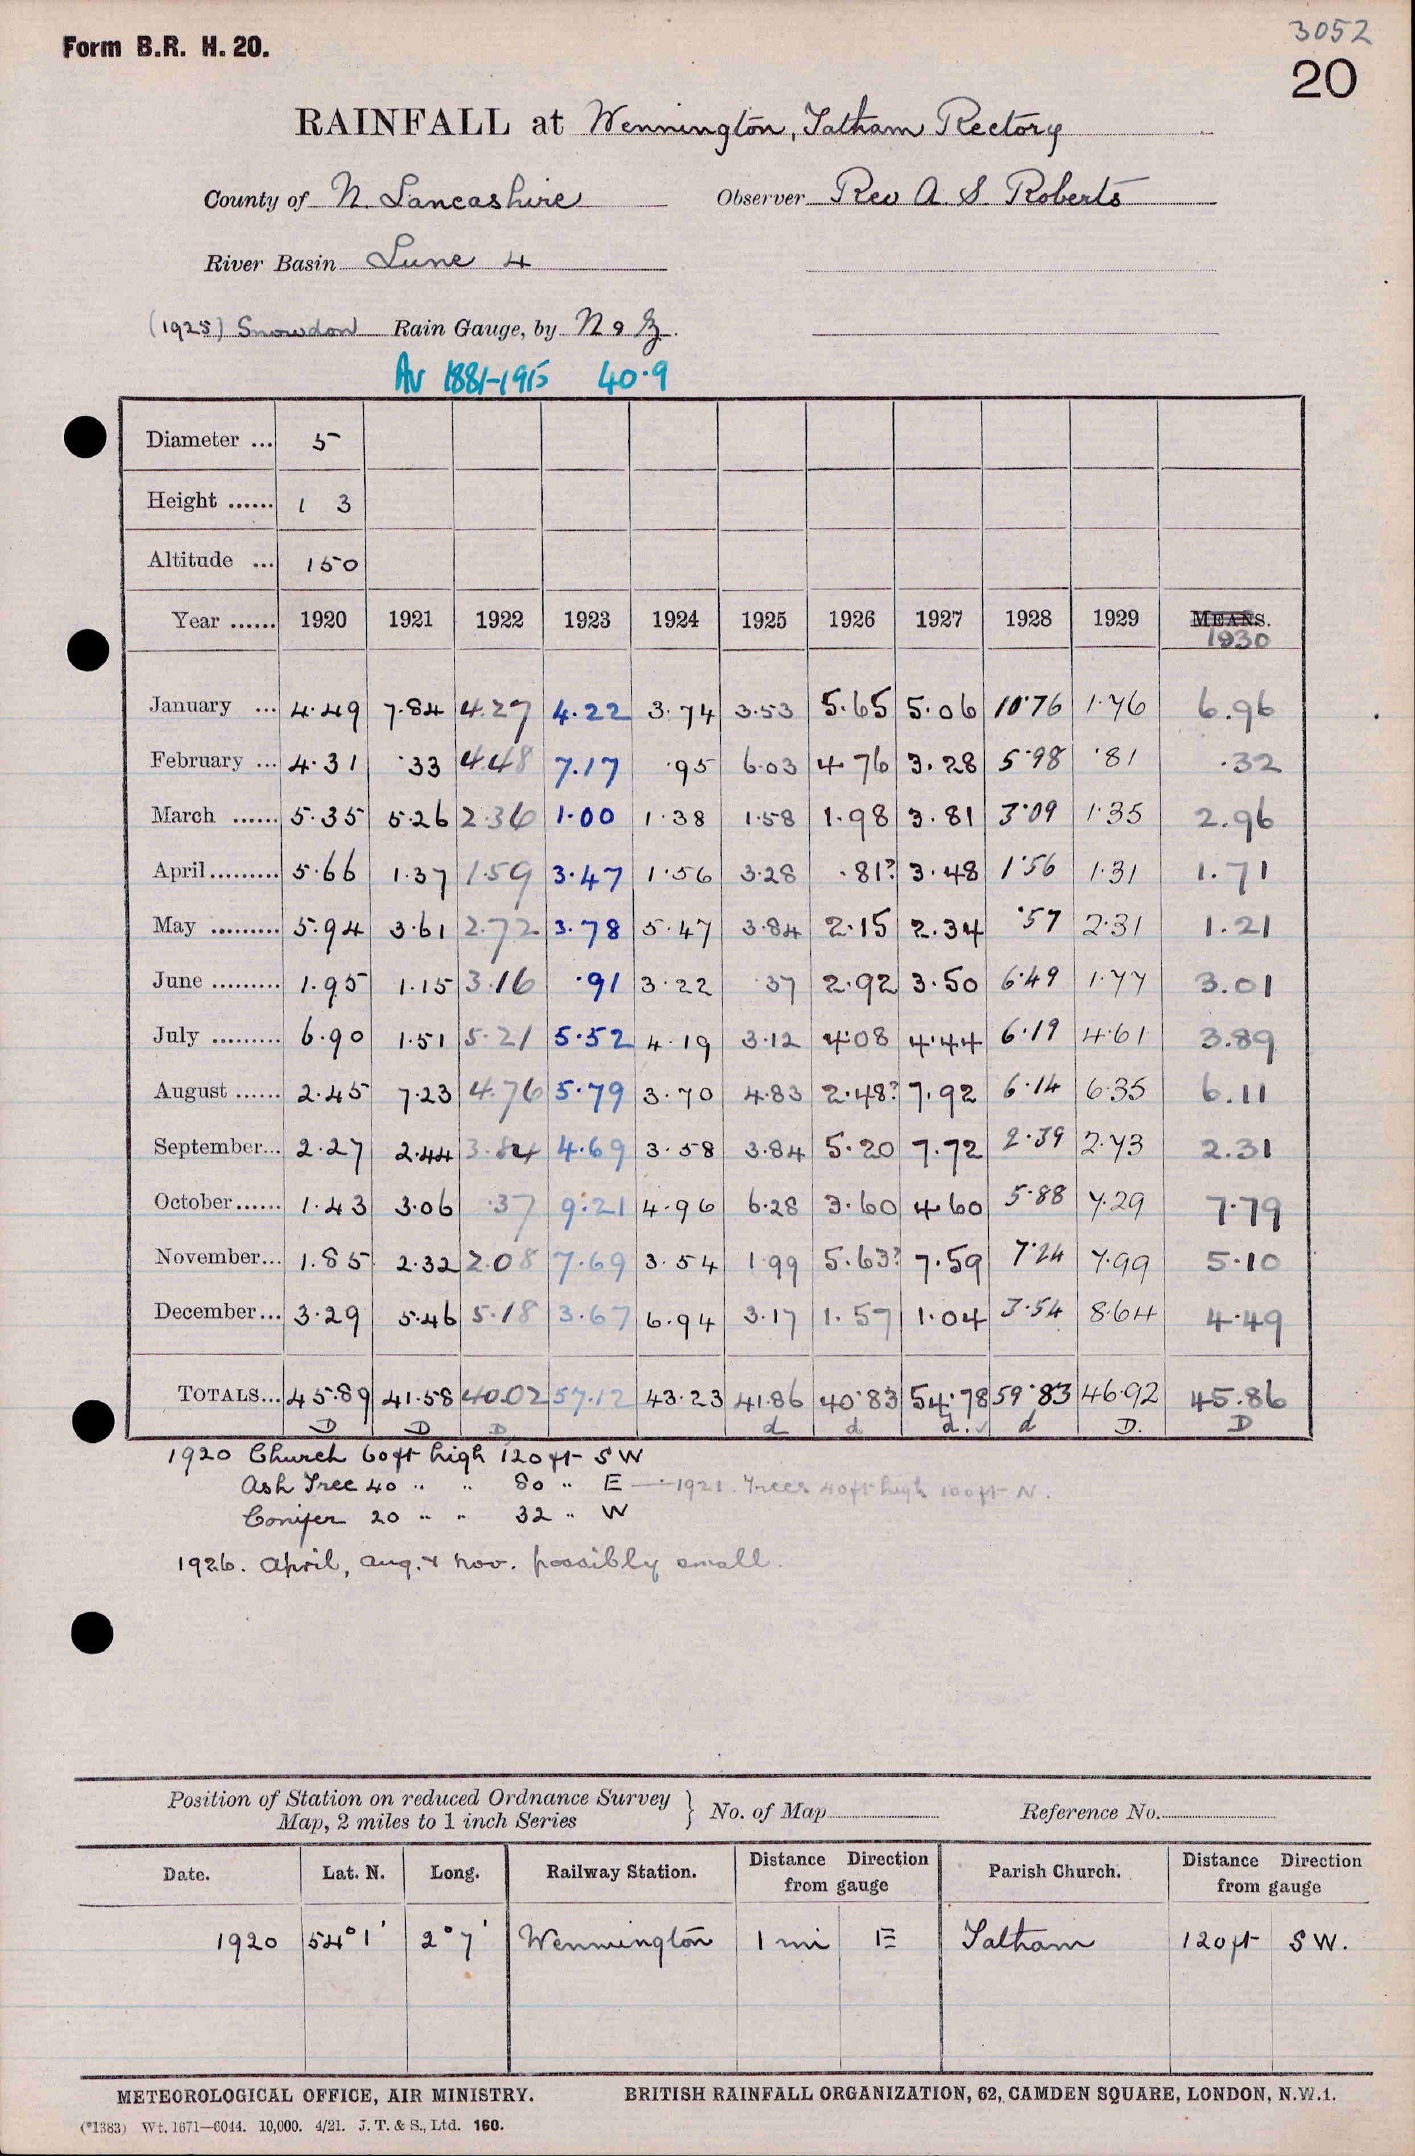 3052
Form B.R. H. 20.
20
RAINFALL at Wennington, Tatham Rectory
County of N. Lancashire Observer Rev A. S. Roberts
River Basin Lune 4
(1925) Snowdon Rain Gauge, by N & Z.
Av 1881-1915 40.9
Diameter ... 5
Height ...... 1 3
Altitude ... 150
Year ...... 1920 1921 1922 1923 1924 1925 1926 1927 1928 1929 MEANS. 1930
January ... 4.49 7.84 4.27 4.22 3.74 3.53 5.65 5.06 10.76 1.76 6.96
February ... 4.31 .33 4.48 7.17 .95 6.03 4.76 3.28 5.98 .81 .32
March ...... 5.35 5.26 2.36 1.00 1.38 1.58 1.98 3.81 3.09 1.35 2.96
April ......... 5.66 1.37 1.59 3.47 1.56 3.28 .81? 3.48 1.56 1.31 1.71
May ......... 5.94 3.61 2.72 3.78 5.47 3.84 2.15 2.34 .57 2.31 1.21
June ......... 1.95 1.15 3.16 .91 3.22 .37 2.92 3.50 6.49 1.77 3.01
July ......... 6.90 1.51 5.21 5.52 4.19 3.12 4.08 4.44 6.19 4.61 3.89
August ...... 2.45 7.23 4.76 5.79 3.70 4.83 2.48? 7.92 6.14 6.35 6.11
September... 2.27 2.44 3.84 4.69 3.58 3.84 5.20 7.72 2.39 2.73 2.31
October ...... 1.43 3.06 .37 9.21 4.96 6.28 3.60 4.60 5.88 7.29 7.79
November... 1.85 2.32 2.08 7.69 3.54 1.99 5.63? 7.59 7.24 7.99 5.10
December... 3.29 5.46 5.18 3.67 6.94 3.17 1.57 1.04 3.54 8.64 4.49
TOTALS... 45.89 41.58 40.02 57.12 43.23 41.86 40.83 54.78 59.83 46.92 45.86
D D D d d d. ✓ d D. D
1920 Church 60ft high 120ft SW
Ash Tree 40 " " 80 " E — 1921. Trees 40ft high 100ft N.
Conifer 20 " " 32 " W
1926. April, Aug. & Nov. possibly small.
Position of Station on reduced Ordnance Survey Map, 2 miles to 1 inch Series } No. of Map Reference No.
Date. Lat. N. Long. Railway Station. Distance Direction from gauge Parish Church. Distance Direction from gauge
1920 54° 1' 2° 7' Wennington 1 mi E Tatham 120ft SW.
METEOROLOGICAL OFFICE, AIR MINISTRY. BRITISH RAINFALL ORGANIZATION, 62, CAMDEN SQUARE, LONDON, N.W.1.
(*1383) Wt. 1671—6044. 10,000. 4/21. J. T. & S., Ltd. 160.